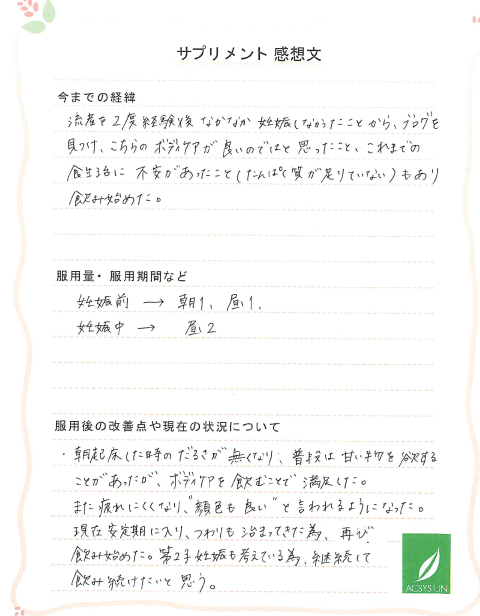 サプリメント 感想文
今までの経緯
流産を2度経験後 なかなか 妊娠しなかったことから、ブログを
見つけ、こちらの ボディケアが 良いのではと 思ったこと、これまでの
食生活に 不安があったこと(たんぱく質が足りていない)もあり
飲み始めた。
服用量・服用期間など
妊娠前 → 朝1、昼1、
妊娠中 → 昼2
服用後の改善点や現在の状況について
・朝起床した時のだるさが 無くなり、普段は 甘い物を 欲する
ことがあったが、ボディケアを 飲むことで 満足した。
また 疲れにくくなり、"顔色も 良い"と 言われるようになった。
現在 安定期に入り、つわりも 治まってきた為、再び
飲み始めた。第2子妊娠も考えている為、継続して
飲み続けたいと 思う。
ACSYSUN